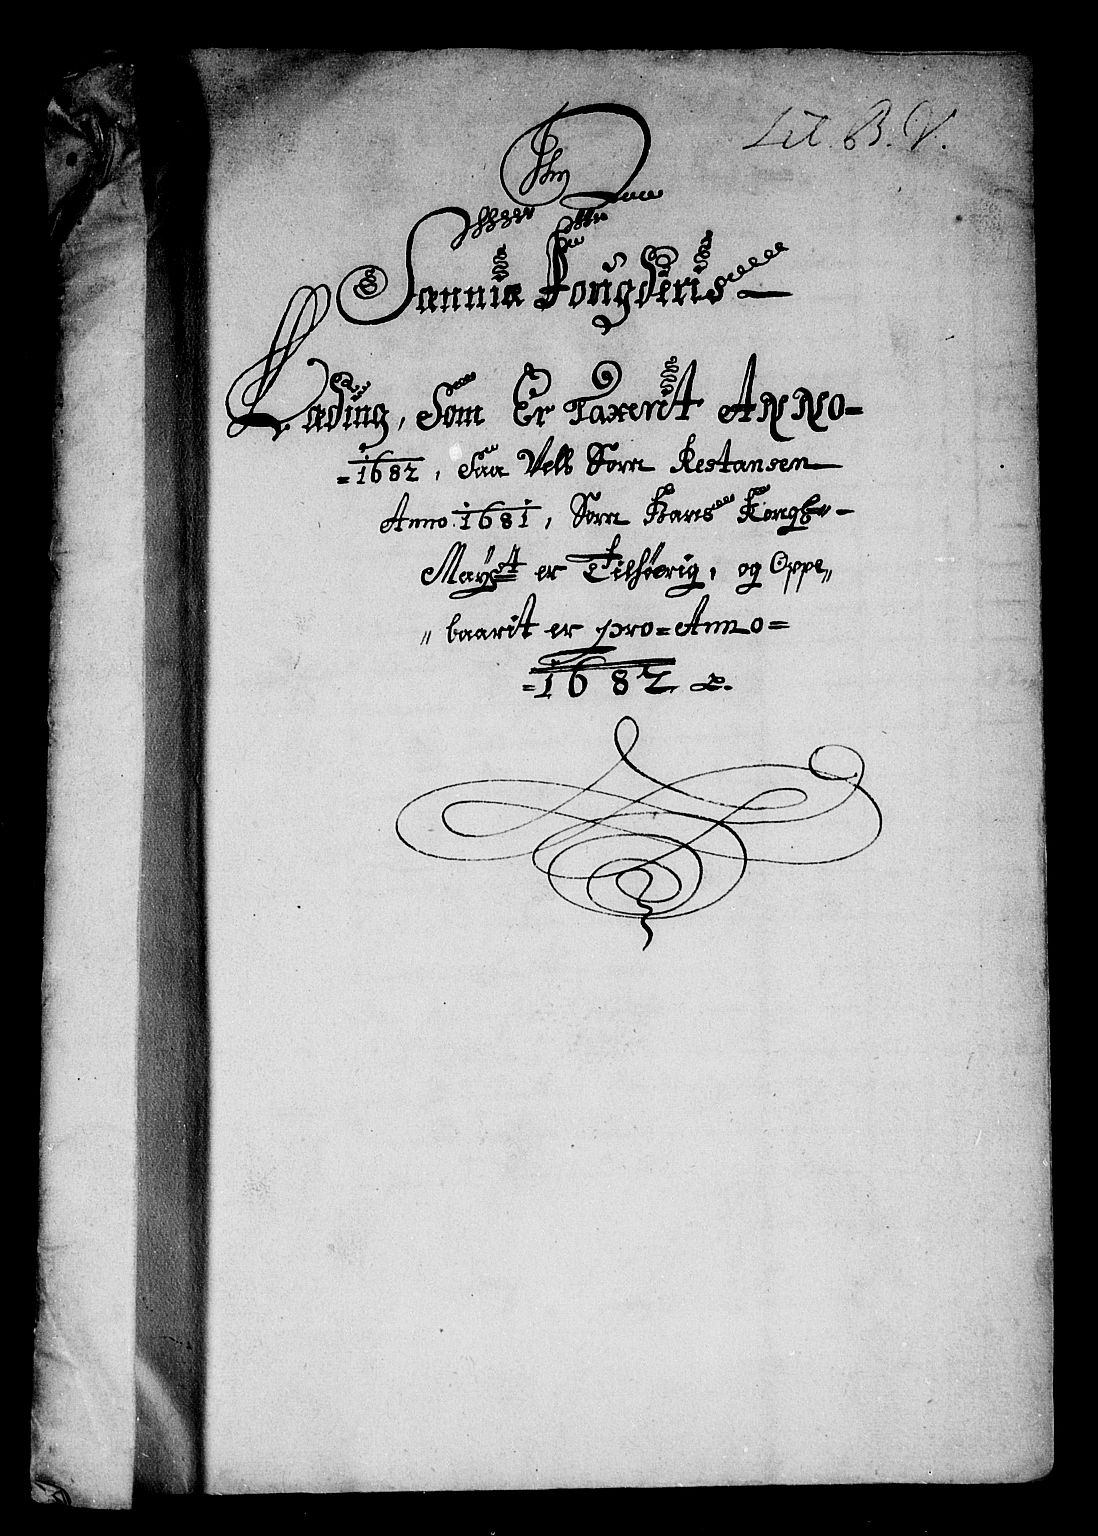 Lit. B. V.
Sannix Fougderis
Lading, Som Er Taxerit ANNO
1682, Saa Vells Som Restansen
Anno 1681, Som Hans Kongl:
Mayst er Tilhörig, og Oppe„
„baarit er pro Anno
1682